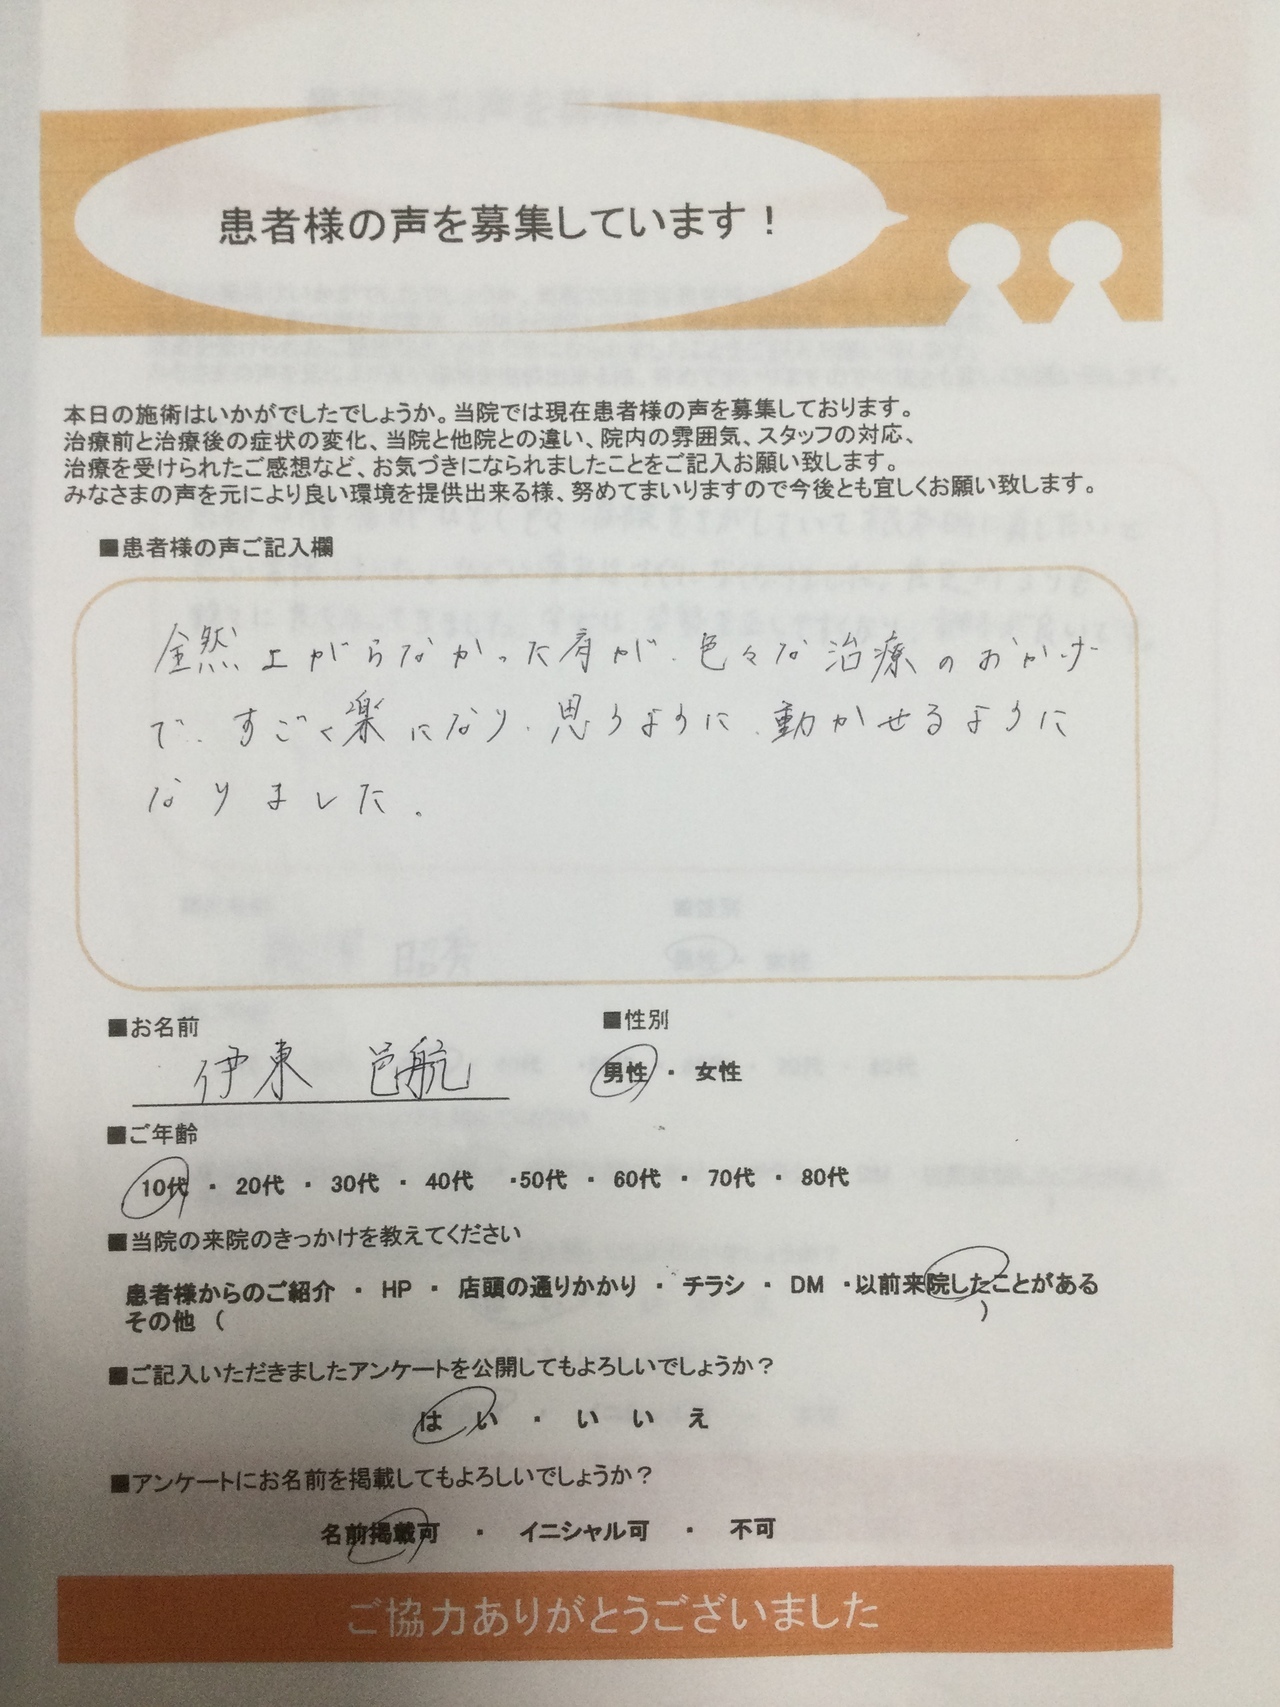 患者様の声を募集しています！
本日の施術はいかがでしたでしょうか。当院では現在患者様の声を募集しております。
治療前と治療後の症状の変化、当院と他院との違い、院内の雰囲気、スタッフの対応、
治療を受けられたご感想など、お気づきになられましたことをご記入お願い致します。
みなさまの声を元により良い環境を提供出来る様、努めてまいりますので今後とも宜しくお願い致します。
■患者様の声ご記入欄
全然上がらなかった肩が、色々な治療のおかげ
で、すごく楽になり、思うように、動かせるように
なりました。
■お名前 ■性別
伊東 邑航 男性 ・ 女性
■ご年齢
10代 ・ 20代 ・ 30代 ・ 40代 ・50代 ・ 60代 ・ 70代 ・ 80代
■当院の来院のきっかけを教えてください
患者様からのご紹介 ・ HP ・ 店頭の通りかかり ・ チラシ ・ DM ・以前来院したことがある
その他（ ）
■ご記入いただきましたアンケートを公開してもよろしいでしょうか？
はい ・ いいえ
■アンケートにお名前を掲載してもよろしいでしょうか？
名前掲載可 ・ イニシャル可 ・ 不可
ご協力ありがとうございました